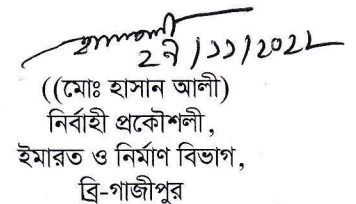 ২৭/১১/২০২২
((মোঃ হাসান আলী)
নির্বাহী প্রকৌশলী,
ইমারত ও নির্মাণ বিভাগ,
ব্রি-গাজীপুর